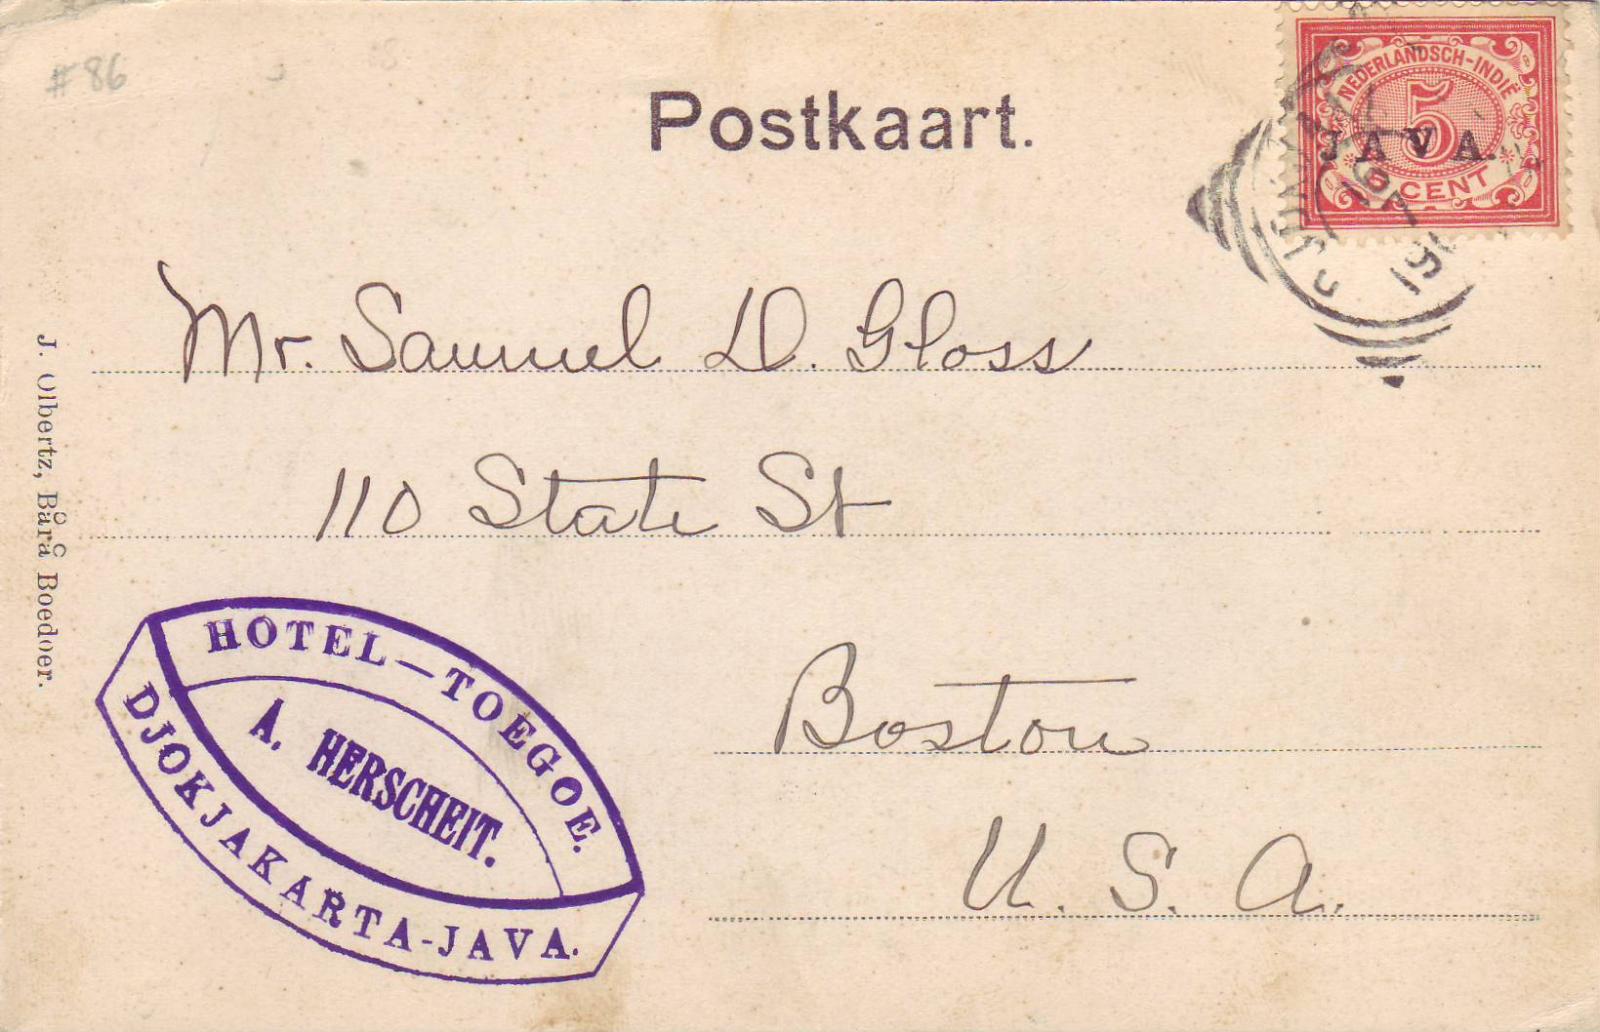 #86
Postkaart.
NEDERLANDSCH-INDIË
5
JAVA.
5 CENT
Mr. Samuel D. Gloss
110 State St
Boston
U. S. A.
J. Olbertz, Bårå Boedoer.
HOTEL-TOEGOE.
A. HERSCHEIT.
DJOKJAKARTA-JAVA.